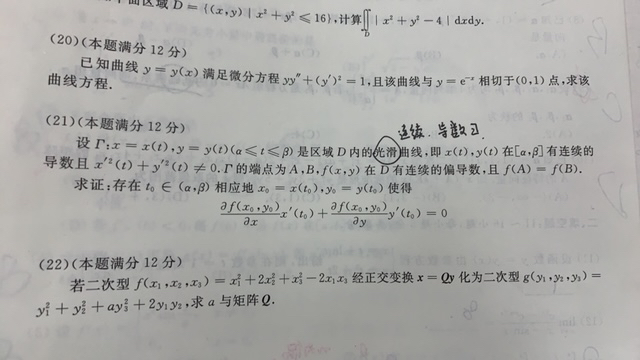 平面区域 D = {(x,y) | x² + y² ≤ 16}, 计算∬_D | x² + y² − 4 | dxdy.
(20)(本题满分 12 分)
已知曲线 y = y(x) 满足微分方程 yy″ + (y′)² = 1, 且该曲线与 y = e⁻ˣ 相切于(0,1) 点, 求该
曲线方程.
连续. 导数
(21)(本题满分 12 分)
设 Γ: x = x(t), y = y(t)(α ≤ t ≤ β) 是区域 D 内的光滑曲线, 即 x(t), y(t) 在[α,β] 有连续的
导数且 x′²(t) + y′²(t) ≠ 0. Γ 的端点为 A, B, f(x,y) 在 D 有连续的偏导数, 且 f(A) = f(B).
求证: 存在 t₀ ∈ (α,β) 相应地 x₀ = x(t₀), y₀ = y(t₀) 使得
∂f(x₀,y₀)/∂x x′(t₀) + ∂f(x₀,y₀)/∂y y′(t₀) = 0
(22)(本题满分 12 分)
若二次型 f(x₁,x₂,x₃) = x₁² + 2x₂² + x₃² − 2x₁x₃ 经正交变换 x = Qy 化为二次型 g(y₁,y₂,y₃) =
y₁² + y₂² + ay₃² + 2y₁y₂, 求 a 与矩阵 Q.